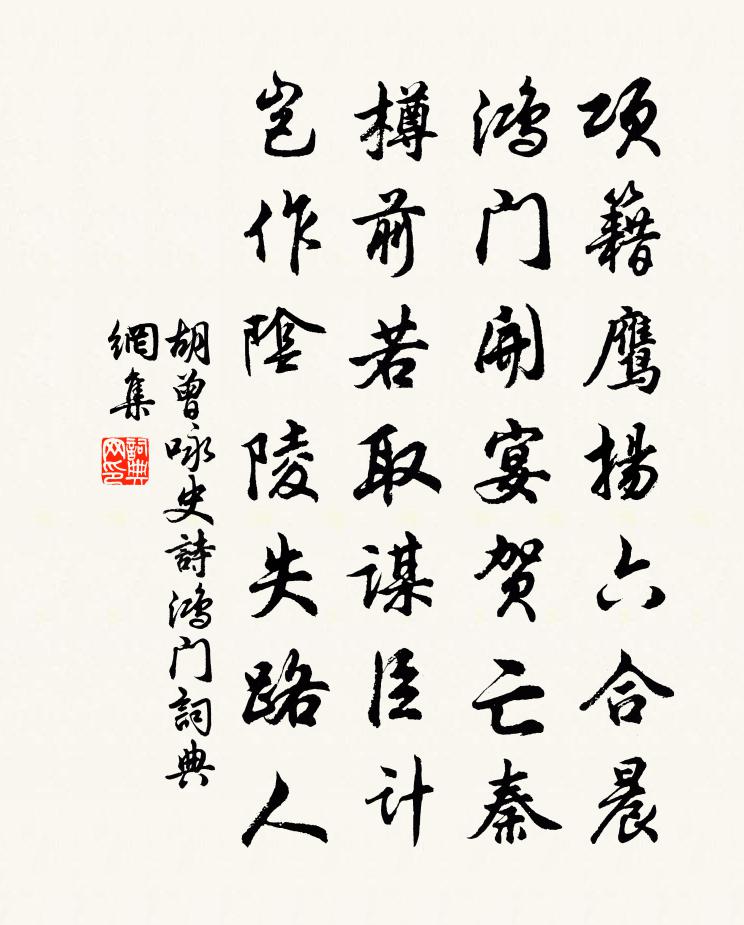 项籍鹰揚六合晨
鸿门開宴贺亡秦
樽前若取谋臣计
岂作陰陵失路人
胡曾咏史詩鸿门詞典
網集
詞典
网印